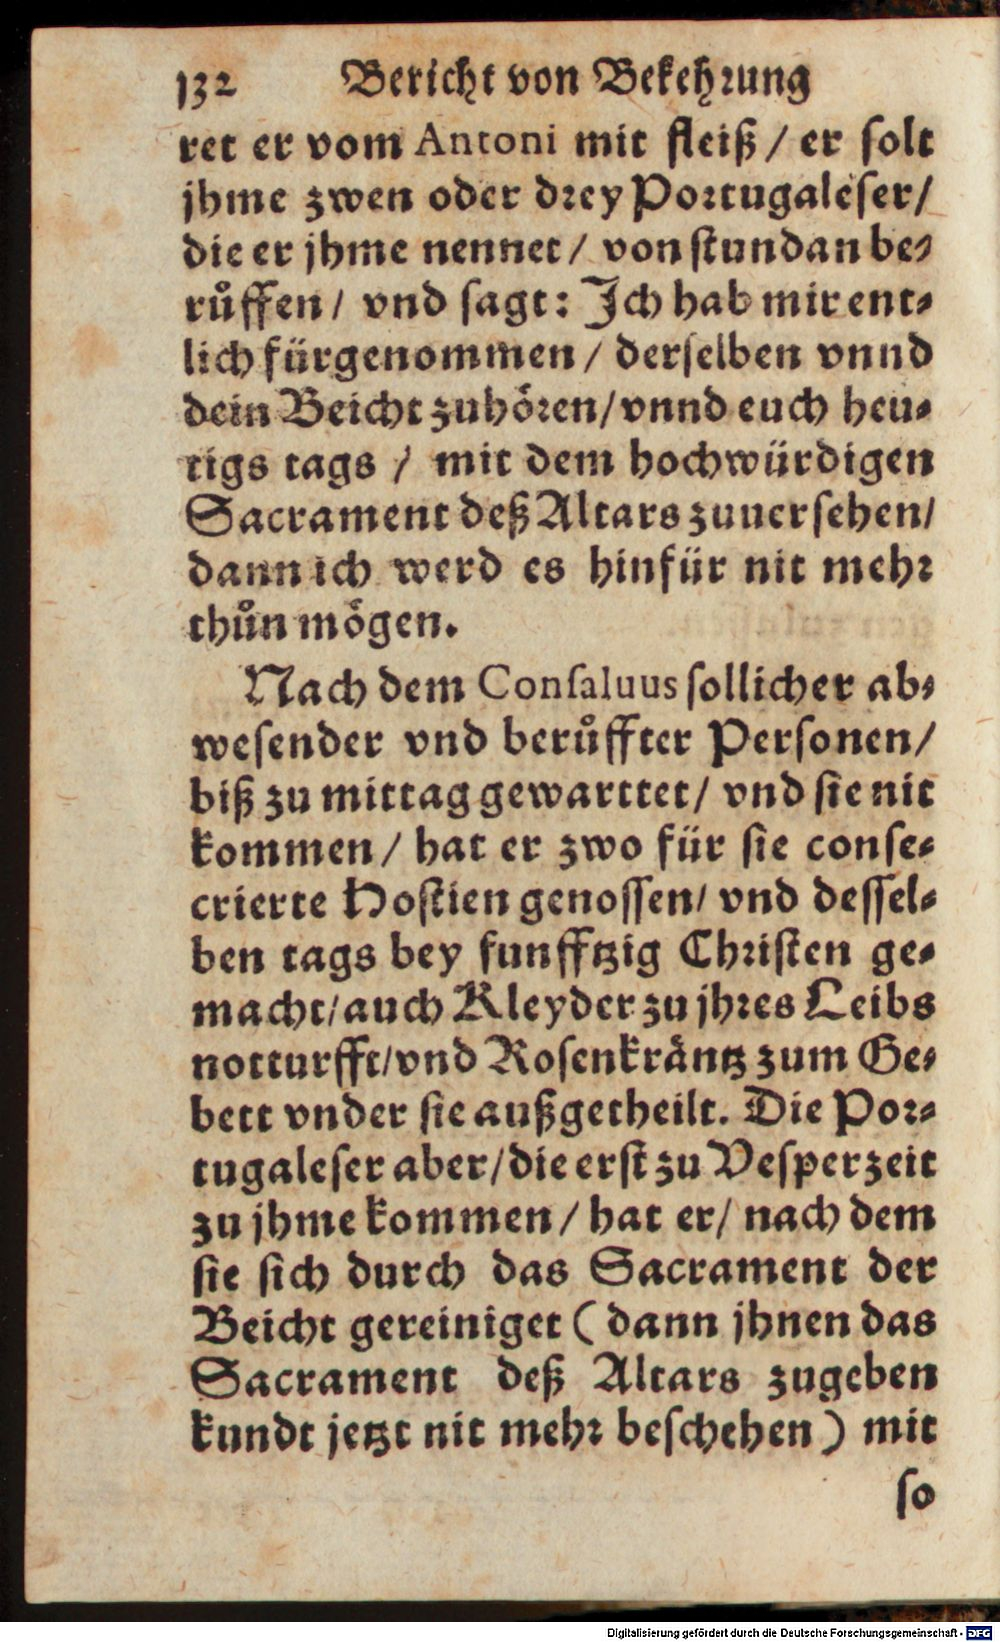 132 Bericht von Bekehrung
ret er vom Antoni mit fleiß / er solt
jhme zwen oder drey Portugaleser /
die er jhme nennet / von stundan be-
růffen / vnd sagt: Jch hab mir ent-
lich fürgenommen / derselben vnnd
dein Beicht zuhören / vnnd euch heu-
tigs tags / mit dem hochwürdigen
Sacrament deß Altars zuuersehen /
dann ich werd es hinfür nit mehr
thůn mögen.
Nach dem Consaluus sollicher ab-
wesender vnd berůffter Personen /
biß zu mittag gewarttet / vnd sie nit
kommen / hat er zwo für sie conse-
crierte Hostien genossen / vnd dessel-
ben tags bey funfftzig Christen ge-
macht / auch Kleyder zu jhres Leibs
notturfft / vnd Rosenkräntz zum Ge-
bett vnder sie außgetheilt. Die Por-
tugaleser aber / die erst zu Vesperzeit
zu jhme kommen / hat er / nach dem
sie sich durch das Sacrament der
Beicht gereiniget ( dann jhnen das
Sacrament deß Altars zugeben
kundt jetzt nit mehr beschehen ) mit
so
Digitalisierung gefördert durch die Deutsche Forschungsgemeinschaft - DFG